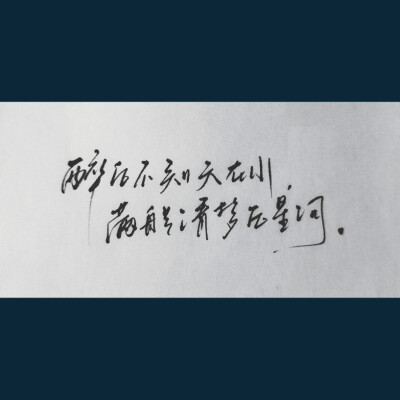 醉后不知天在水,
满船清梦压星河。